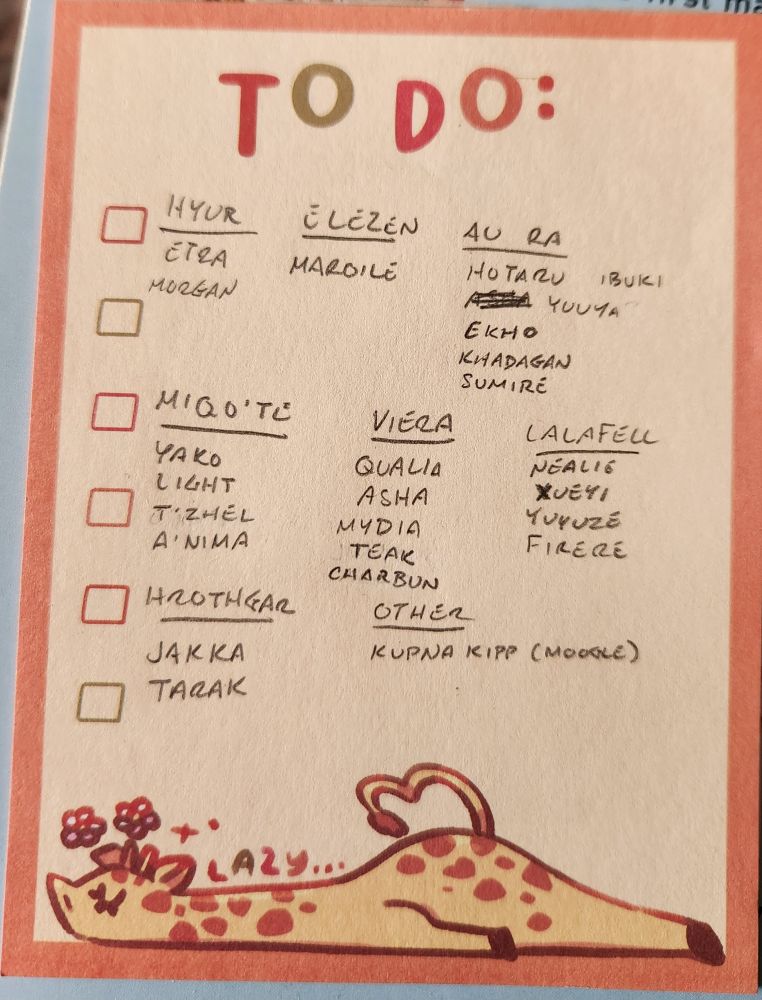 first ma
TO DO:
HYUR
ETRA
MORGAN
ELEZEN
MARDILE
AU RA
HOTARU IBUKI
YUUYA
EKHO
KHADAGAN
SUMIRE
MIQO'TE
YAKO
LIGHT
T'ZHEL
A'NIMA
VIERA
QUALIA
ASHA
MYDIA
TEAK
CHARBUN
LALAFELL
NEALIE
XUEYI
YUYUZE
FIRERE
HROTHGAR
JAKKA
TARAK
OTHER
KUPNA KIPP (MOOGLE)
LAZY...